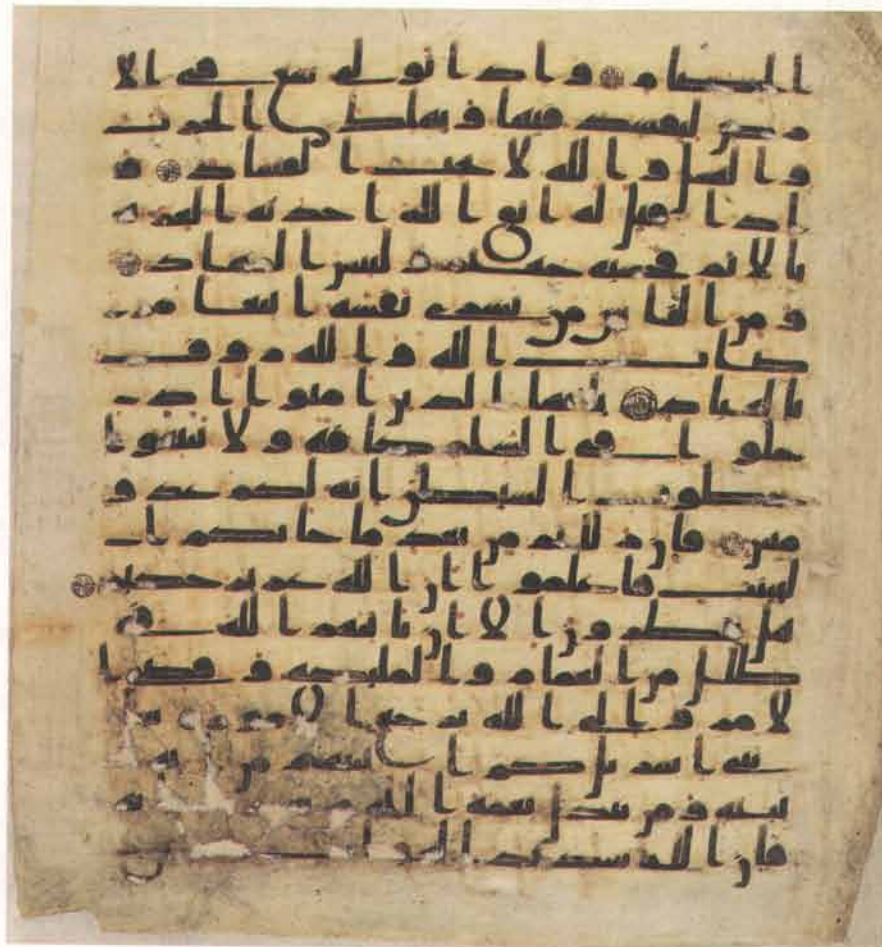 الخصام واذا تولى سعى في الا
رض ليفسد فيها ويهلك الحرث
والنسل والله لا يحب الفساد و
اذا قيل له اتق الله اخذته العزه
بالاثم فحسبه جهنم ولبئس المهاد
ومن الناس من يشري نفسه ابتغا مر
ضات الله والله روف
بالعباد يايها الذين امنوا اد
خلوا في السلم كافه ولا تتبعوا
خطوت الشيطن انه لكم عدو
مبين فان زللتم من بعد ما جاتكم ا
لبينت فاعلموا ان الله عزيز حكيم
هل ينظرون الا ان ياتيهم الله في
ظلل من الغمام والمليكه وقضي ا
لامر والى الله ترجع الامور سل
بني اسريل كم اتينهم من ايه
بينه ومن يبدل نعمه الله من
فان الله شديد العقاب زين